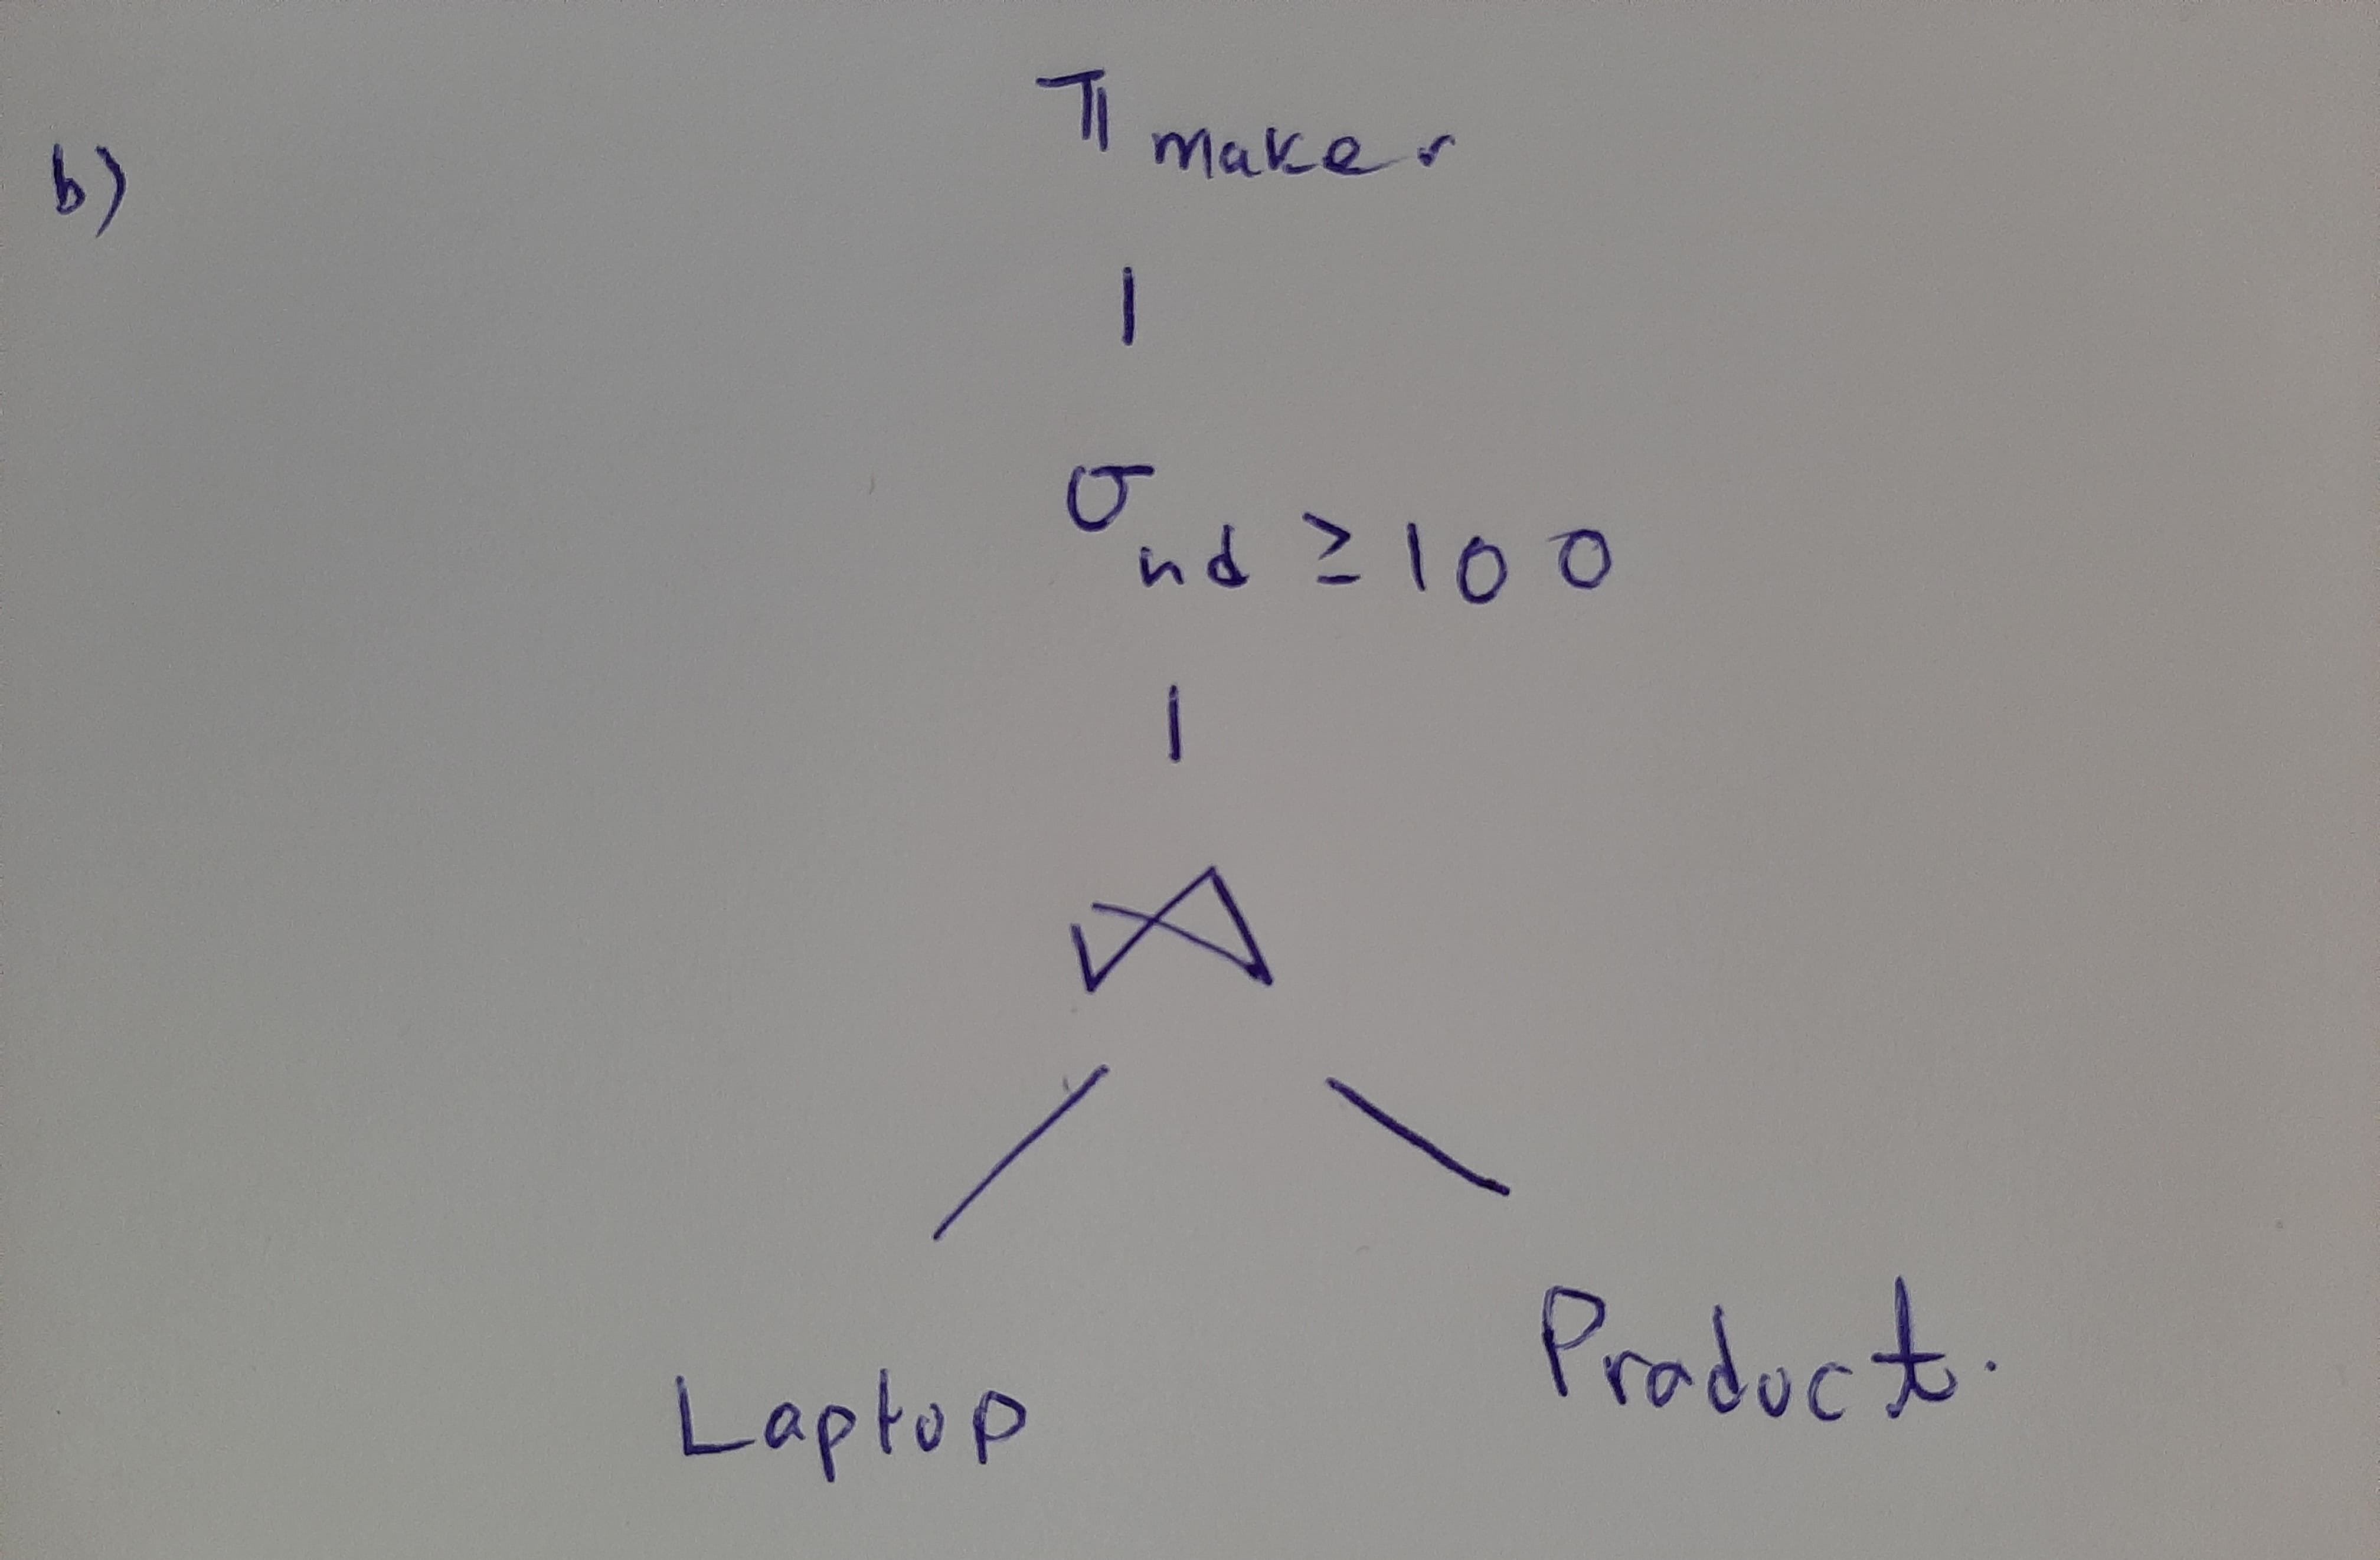 b)
π maker
σ hd ≥ 100
⋈
Laptop
Product.